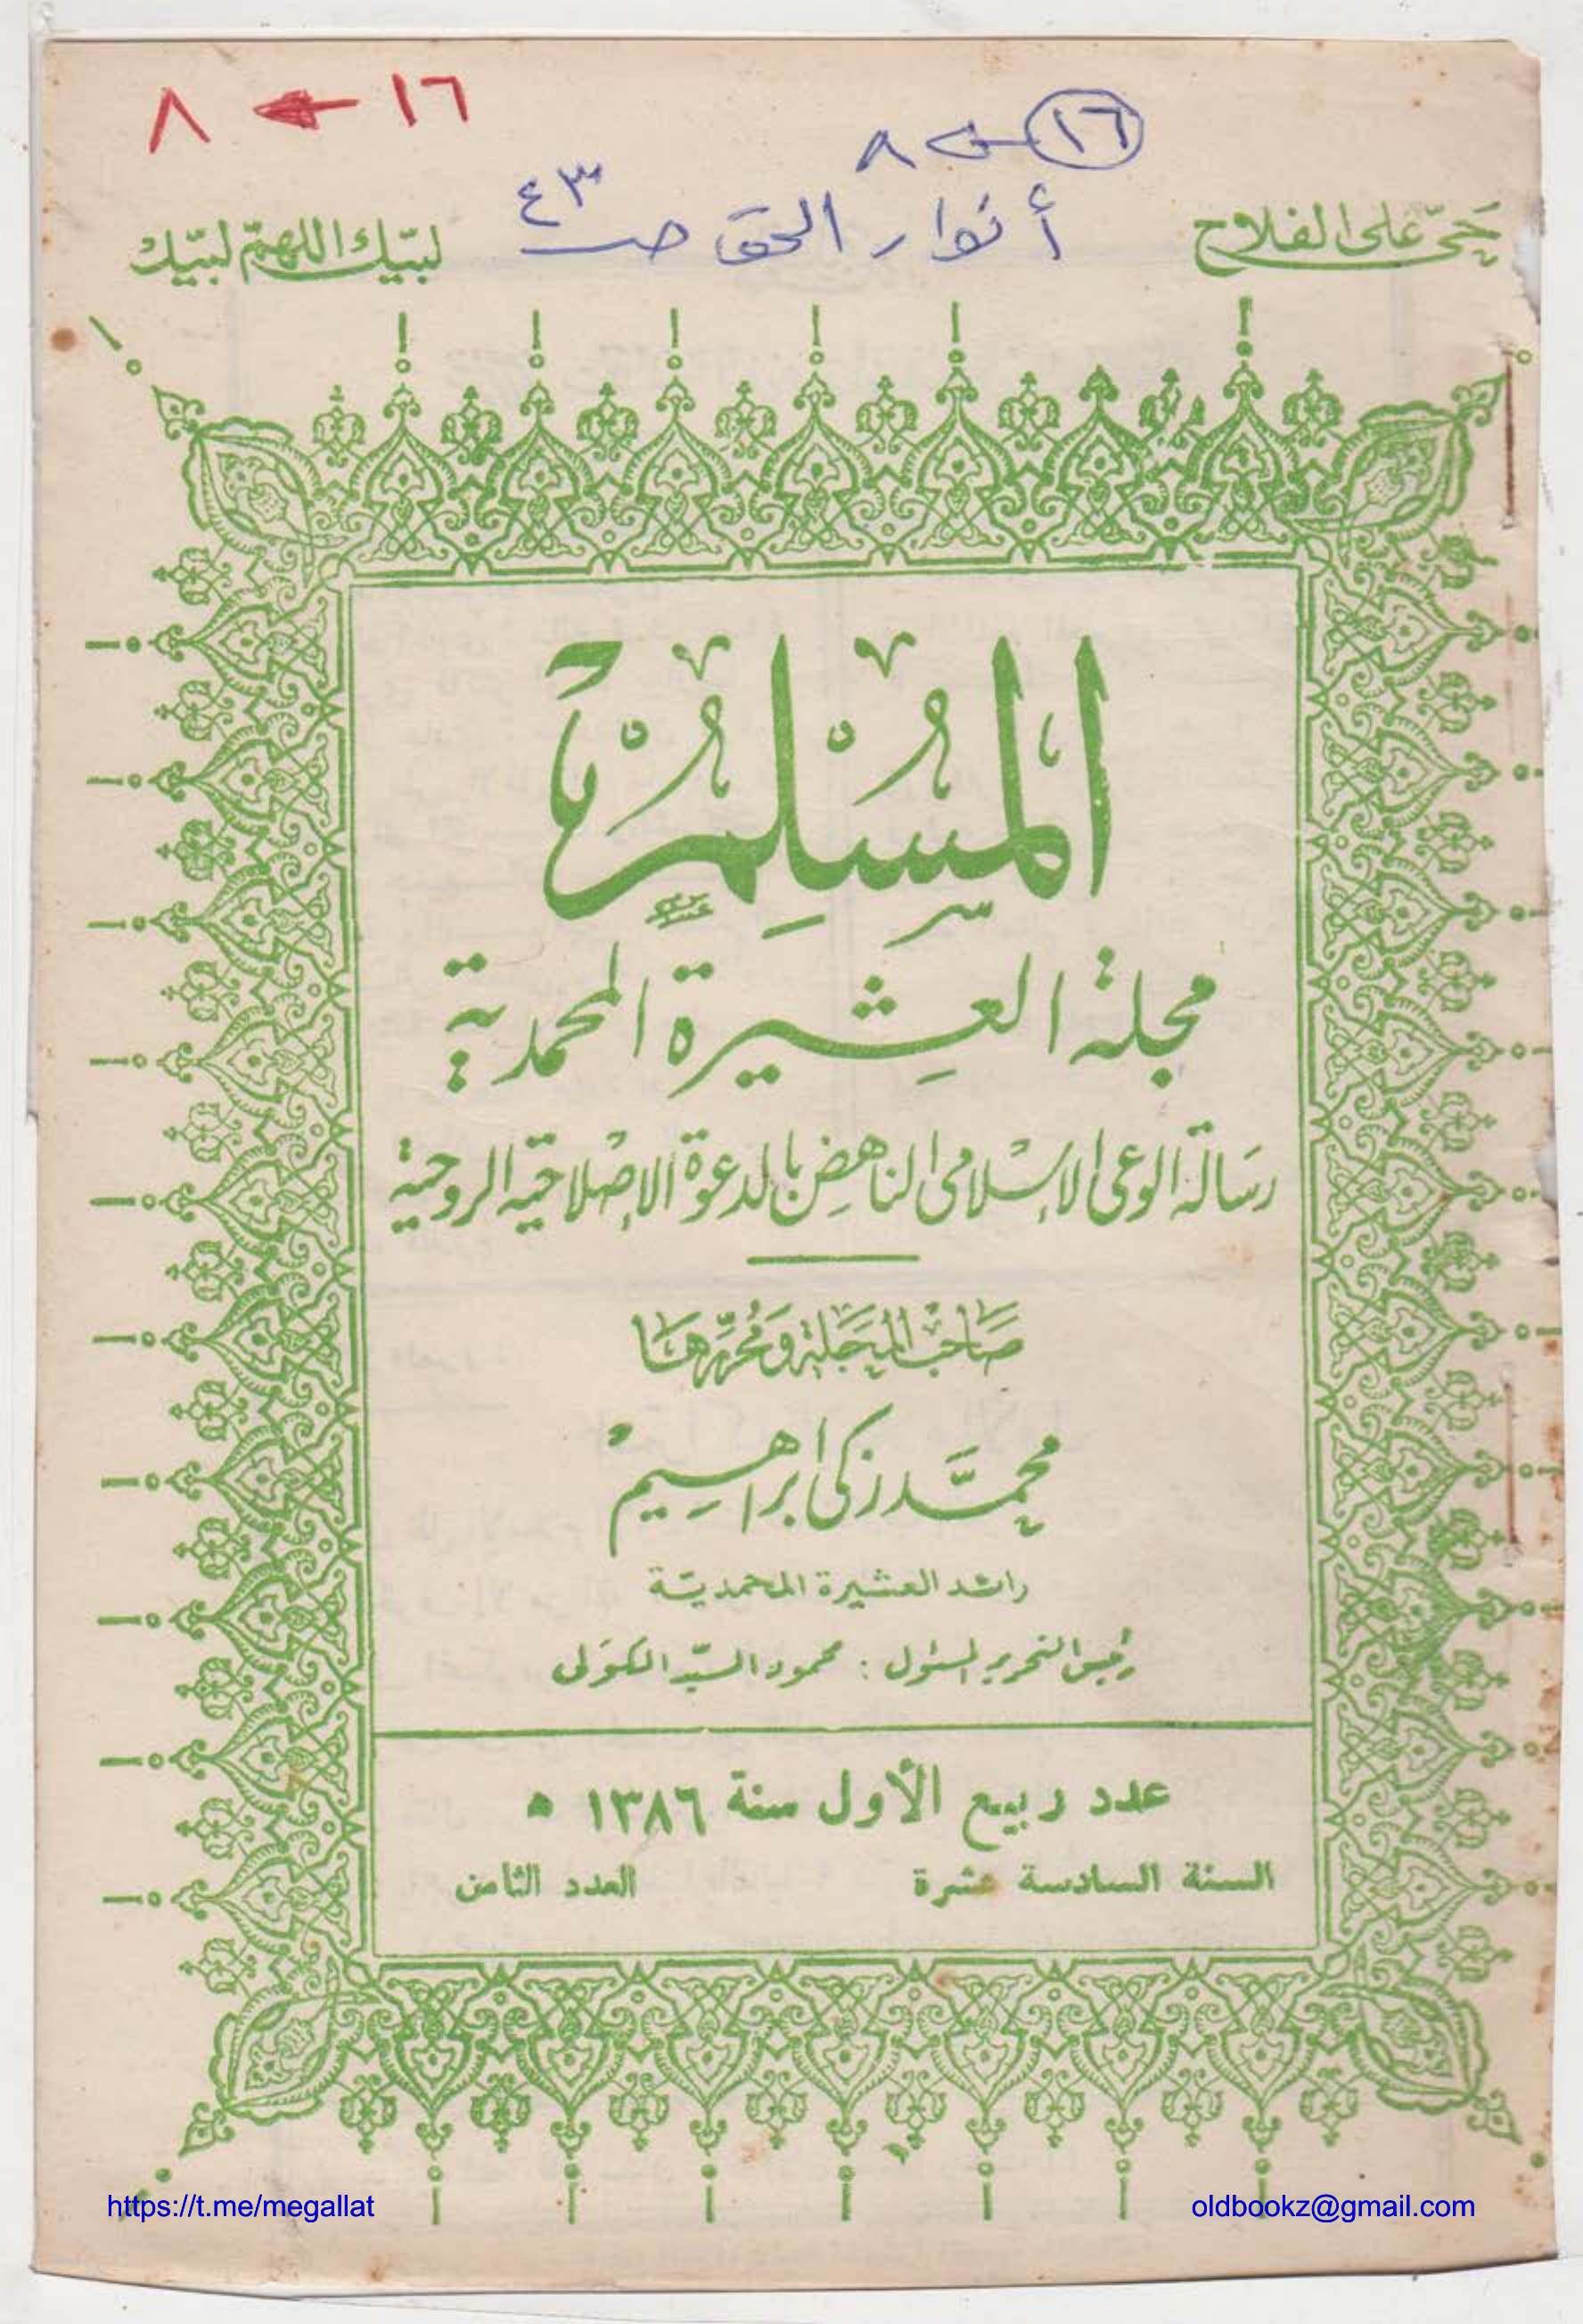 ١٦ ← ٨
١٦ ← ٨
أنوار الحق صـ ٤٣
حَيّ عَلى الفلاح
لبيّك اللهمّ لبيّك
المُسْلِمُ
مجلة العشيرة المحمدية
رسَالة الوعى الإسْلامى الناهض بالدعْوة الإصْلاحيّة الروحية
صَاحبُ المَجَلة وَمُحَرِّرهَا
محمَّد زكى ابراهيم
رائد العشيرة المحمديّة
رئيس التحرير المسئول : محمود السيّد الكوَلى
عدد ربيع الأول سنة ١٣٨٦ هـ
السنة السادسة عشرة
العدد الثامن
https://t.me/megallat
oldbookz@gmail.com